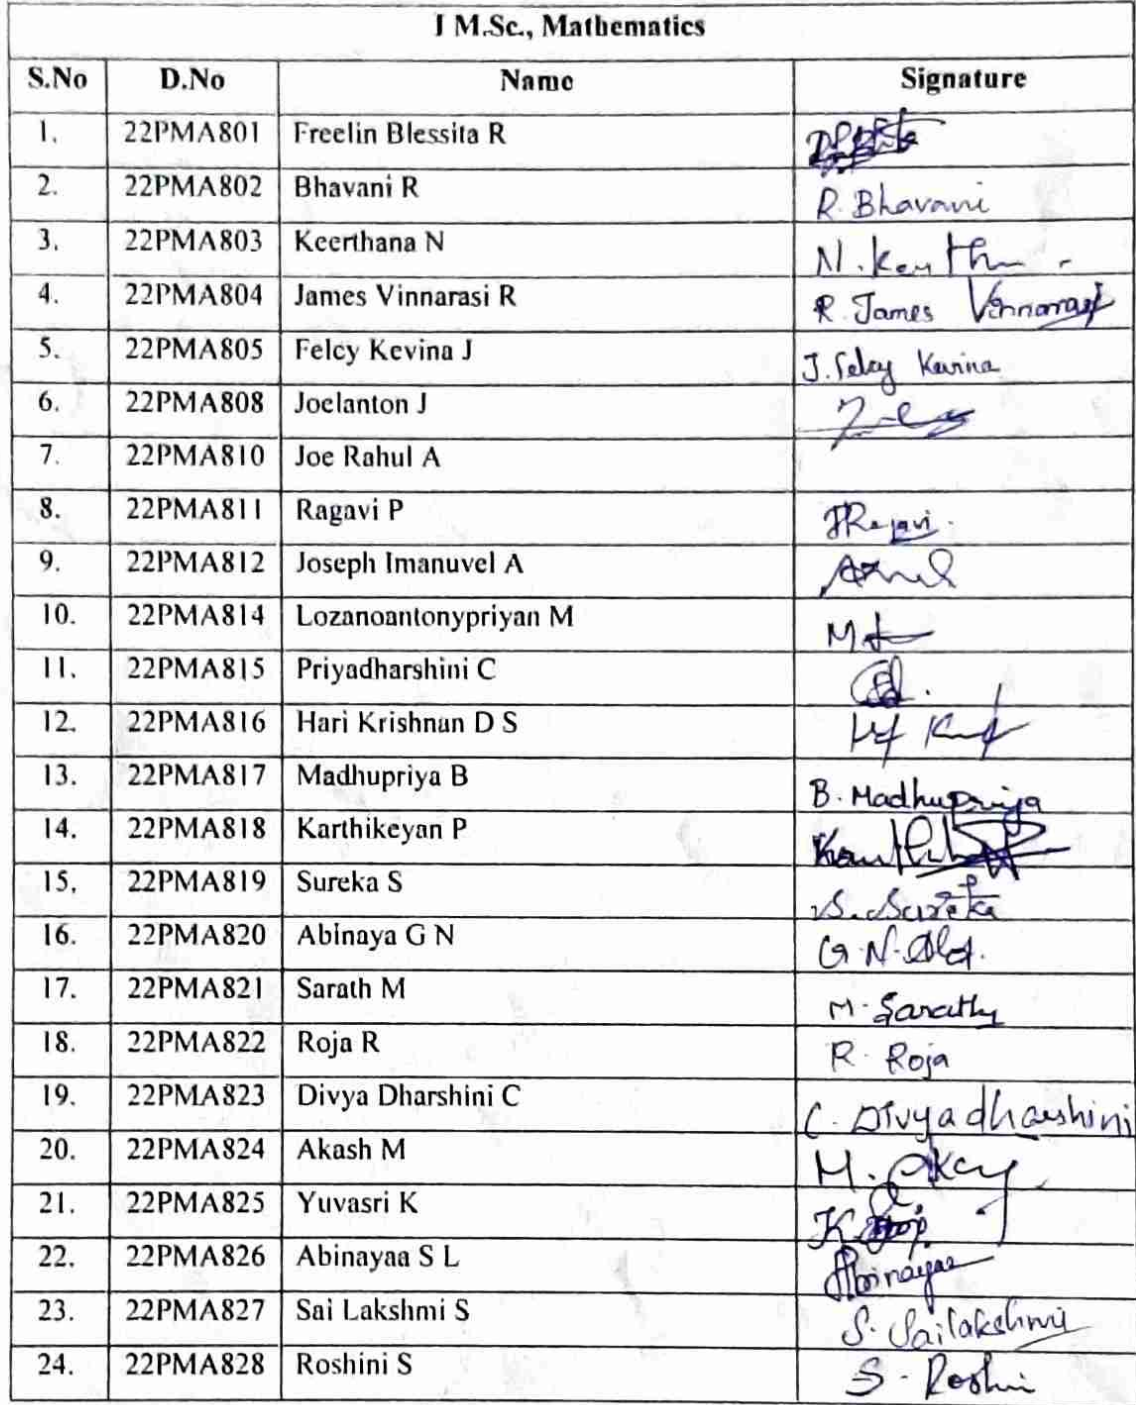 I M.Sc., Mathematics
S.No D.No Name Signature
1. 22PMA801 Freelin Blessita R
2. 22PMA802 Bhavani R R. Bhavani
3. 22PMA803 Keerthana N N.
4. 22PMA804 James Vinnarasi R R. James Vinnarasi
5. 22PMA805 Felcy Kevina J J. Felcy Kevina
6. 22PMA808 Joelanton J
7. 22PMA810 Joe Rahul A
8. 22PMA811 Ragavi P P Ragavi
9. 22PMA812 Joseph Imanuvel A
10. 22PMA814 Lozanoantonypriyan M
11. 22PMA815 Priyadharshini C
12. 22PMA816 Hari Krishnan D S
13. 22PMA817 Madhupriya B B. Madhupriya
14. 22PMA818 Karthikeyan P
15. 22PMA819 Sureka S S. Sureka
16. 22PMA820 Abinaya G N G.N.
17. 22PMA821 Sarath M M. Sarath
18. 22PMA822 Roja R R. Roja
19. 22PMA823 Divya Dharshini C C. Divyadharshini
20. 22PMA824 Akash M M.
21. 22PMA825 Yuvasri K K.
22. 22PMA826 Abinayaa S L Abinayaa
23. 22PMA827 Sai Lakshmi S S. Sailakshmi
24. 22PMA828 Roshini S S. Roshni